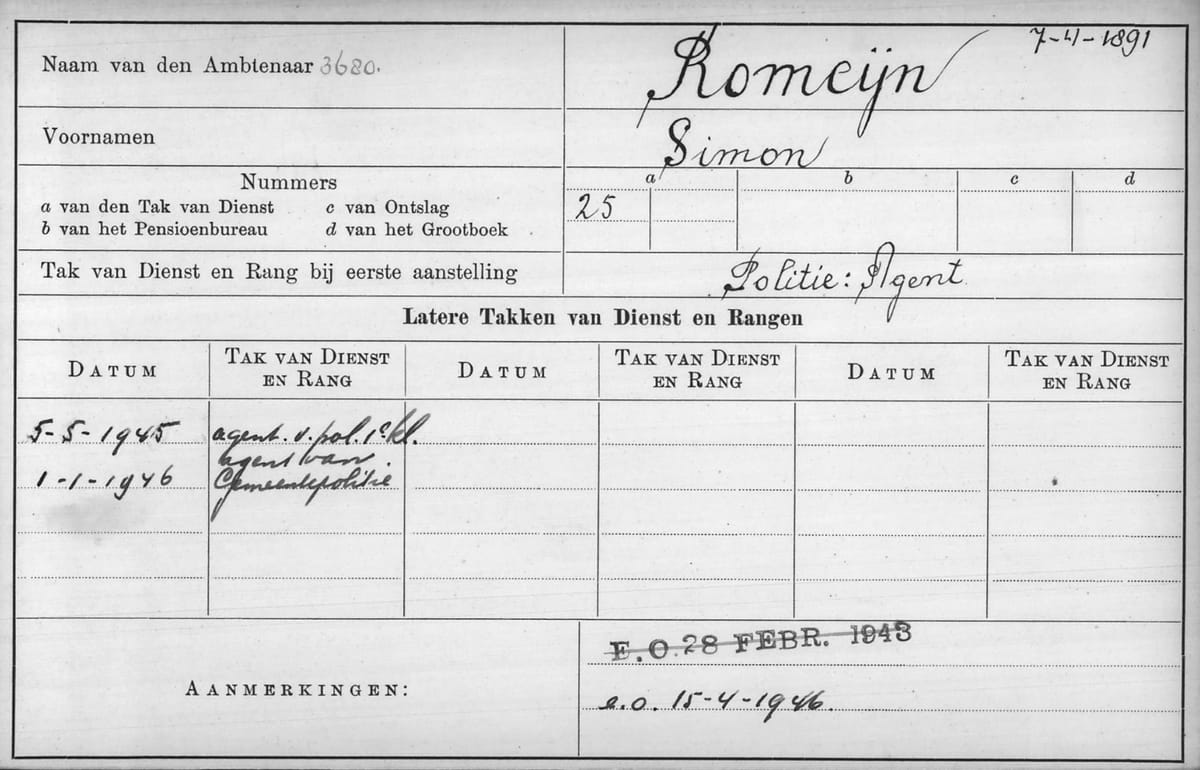 7-4-1891
Naam van den Ambtenaar 3680. Romeijn
Voornamen Simon
Nummers
a b c d
a van den Tak van Dienst c van Ontslag
25
b van het Pensioenbureau d van het Grootboek
Tak van Dienst en Rang bij eerste aanstelling Politie: Agent
Latere Takken van Dienst en Rangen
DATUM TAK VAN DIENST EN RANG DATUM TAK VAN DIENST EN RANG DATUM TAK VAN DIENST EN RANG
5-5-1945 agent. v. pol. 1e kl.
agent van
1-1-1946 Gemeentepolitie
E.O. 28 FEBR. 1943
AANMERKINGEN:
e.o. 15-4-1946.